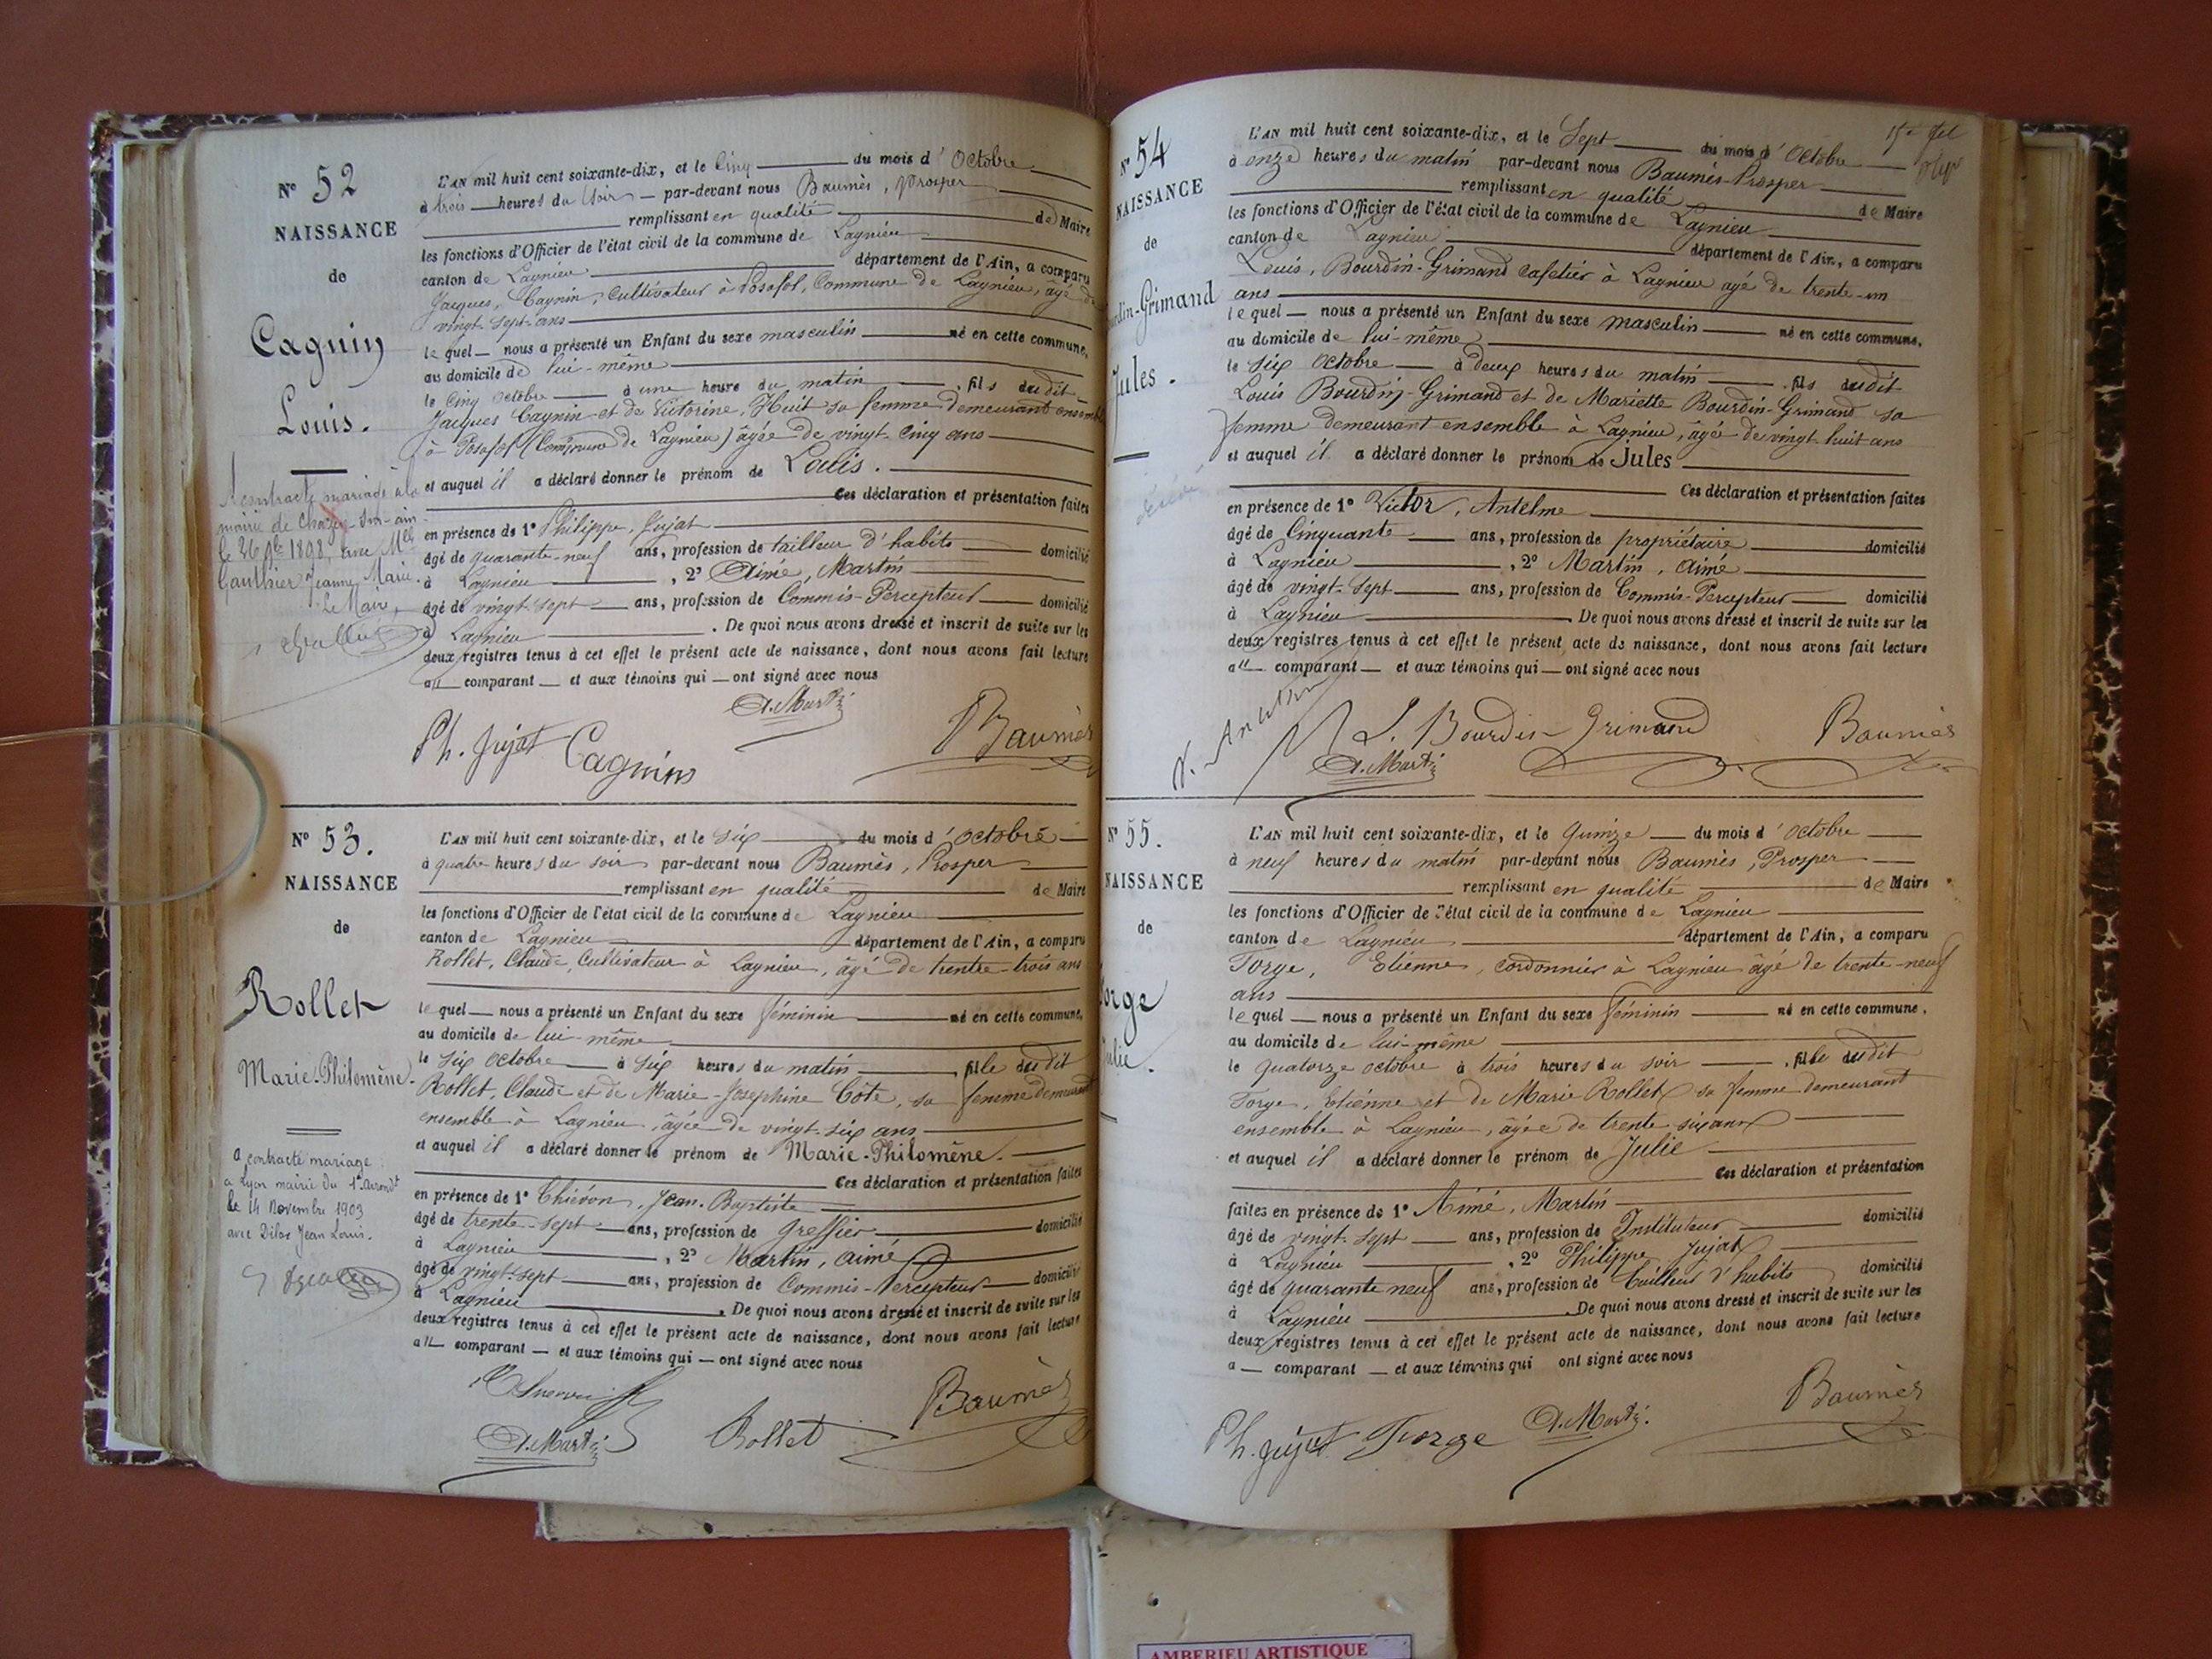 N° 52
NAISSANCE
de
Cagnin
Louis.
L'AN mil huit cent soixante-dix, et le Cinq du mois d'Octobre
à trois heures du Soir par-devant nous Baumès, Prosper
remplissant en qualité de Maire
les fonctions d'Officier de l'état civil de la commune de Lagnieu
canton de Lagnieu département de l'Ain, a comparu
Jacques, Cagnin, Cultivateur à Posafol, Commune de Lagnieu, âgé de
vingt-sept-ans
lequel nous a présenté un Enfant du sexe masculin né en cette commune,
au domicile de lui-même
le cinq Octobre à une heure du matin, fils dudit
Jacques Cagnin et de Victorine, Huit sa femme demeurant ensemble
à Posafol (Commune de Lagnieu) âgée de vingt-cinq ans
et auquel il a déclaré donner le prénom de Louis.
Ces déclaration et présentation faites
en présence de 1° Philippe, Jujat
âgé de quarante-neuf ans, profession de tailleur d'habits domicilié
à Lagnieu, 2° Aimé, Martin
âgé de vingt-sept ans, profession de Commis-Percepteur domicilié
à Lagnieu. De quoi nous avons dressé et inscrit de suite sur les
deux registres tenus à cet effet le présent acte de naissance, dont nous avons fait lecture
au comparant et aux témoins qui ont signé avec nous
A contracté mariage à la
mairie de Chazey-sur-ain
le 26 1898, avec Mlle
Gauthier Jeanne Marie.
Le Maire,
A. Martin
Ph. Jujat Cagnin Baumès
N° 53.
NAISSANCE
de
Rollet
Marie-Philomène.
L'AN mil huit cent soixante-dix, et le six du mois d'Octobre
à quatre heures du soir par-devant nous Baumès, Prosper
remplissant en qualité de Maire
les fonctions d'Officier de l'état civil de la commune de Lagnieu
canton de Lagnieu département de l'Ain, a comparu
Rollet, Claude, Cultivateur à Lagnieu, âgé de trentre-trois ans
lequel nous a présenté un Enfant du sexe féminin né en cette commune,
au domicile de lui-même
le six Octobre à six heures du matin, fille dudit
Rollet, Claude et de Marie-Josephine Cote, sa femme demeurant
ensemble à Lagnieu, âgée de vingt-six ans
et auquel il a déclaré donner le prénom de Marie-Philomène.
Ces déclaration et présentation faites
en présence de 1° Thiévon, Jean-Baptiste
âgé de trente-sept ans, profession de greffier domicilié
à Lagnieu, 2° Martin, Aimé
âgé de vingt-sept ans, profession de Commis-Percepteur domicilié
à Lagnieu. De quoi nous avons dressé et inscrit de suite sur les
deux registres tenus à cet effet le présent acte de naissance, dont nous avons fait lecture
au comparant et aux témoins qui ont signé avec nous
a contracté mariage
a Lyon mairie du 1er arrondt
le 14 Novembre 1903
avec Jean Louis.
A. Martin Rollet Baumès
N° 54
NAISSANCE
de
rdin-Grimand
Jules.
L'AN mil huit cent soixante-dix, et le Sept du mois d'Octobre
à onze heures du matin par-devant nous Baumès-Prosper
remplissant en qualité de Maire
les fonctions d'Officier de l'état civil de la commune de Lagnieu
canton de Lagnieu département de l'Ain, a comparu
Louis, Bourdin-Grimand cafetier à Lagnieu agé de trente-un
ans
lequel nous a présenté un Enfant du sexe masculin né en cette commune,
au domicile de lui-même
le six Octobre à deux heures du matin, fils dudit
Louis Bourdin-Grimand et de Mariette Bourdin-Grimand sa
femme demeurant ensemble à Lagnieu, âgée de vingt huit ans
et auquel il a déclaré donner le prénom de Jules
Ces déclaration et présentation faites
en présence de 1° Victor, Antelme
âgé de Cinquante ans, profession de propriétaire domicilié
à Lagnieu, 2° Martin, Aimé
âgé de vingt-sept ans, profession de Commis-Percepteur domicilié
à Lagnieu. De quoi nous avons dressé et inscrit de suite sur les
deux registres tenus à cet effet le présent acte de naissance, dont nous avons fait lecture
au comparant et aux témoins qui ont signé avec nous
L. Bourdin Grimand Baumès
A. Martin
N° 55.
NAISSANCE
de
orge
ulie.
L'AN mil huit cent soixante-dix, et le quinze du mois d'Octobre
à neuf heures du matin par-devant nous Baumès, Prosper
remplissant en qualité de Maire
les fonctions d'Officier de l'état civil de la commune de Lagnieu
canton de Lagnieu département de l'Ain, a comparu
Forge, Etienne, cordonnier à Lagnieu âgé de trente-neuf
ans
lequel nous a présenté un Enfant du sexe féminin né en cette commune,
au domicile de lui-même
le quatorze octobre à trois heures du soir, fille dudit
Forge, Etienne et de Marie Rollet sa femme demeurant
ensemble à Lagnieu, âgée de trente six ans
et auquel il a déclaré donner le prénom de Julie
Ces déclaration et présentation
faites en présence de 1° Aimé, Martin
âgé de vingt-sept ans, profession de Instituteur domicilié
à Lagnieu, 2° Philippe Jujat
âgé de quarante neuf ans, profession de tailleur d'habits domicilié
à Lagnieu. De quoi nous avons dressé et inscrit de suite sur les
deux registres tenus à cet effet le présent acte de naissance, dont nous avons fait lecture
a comparant et aux témoins qui ont signé avec nous
Ph. Jujat Forge A. Martin Baumès
AMBERIEU ARTISTIQUE